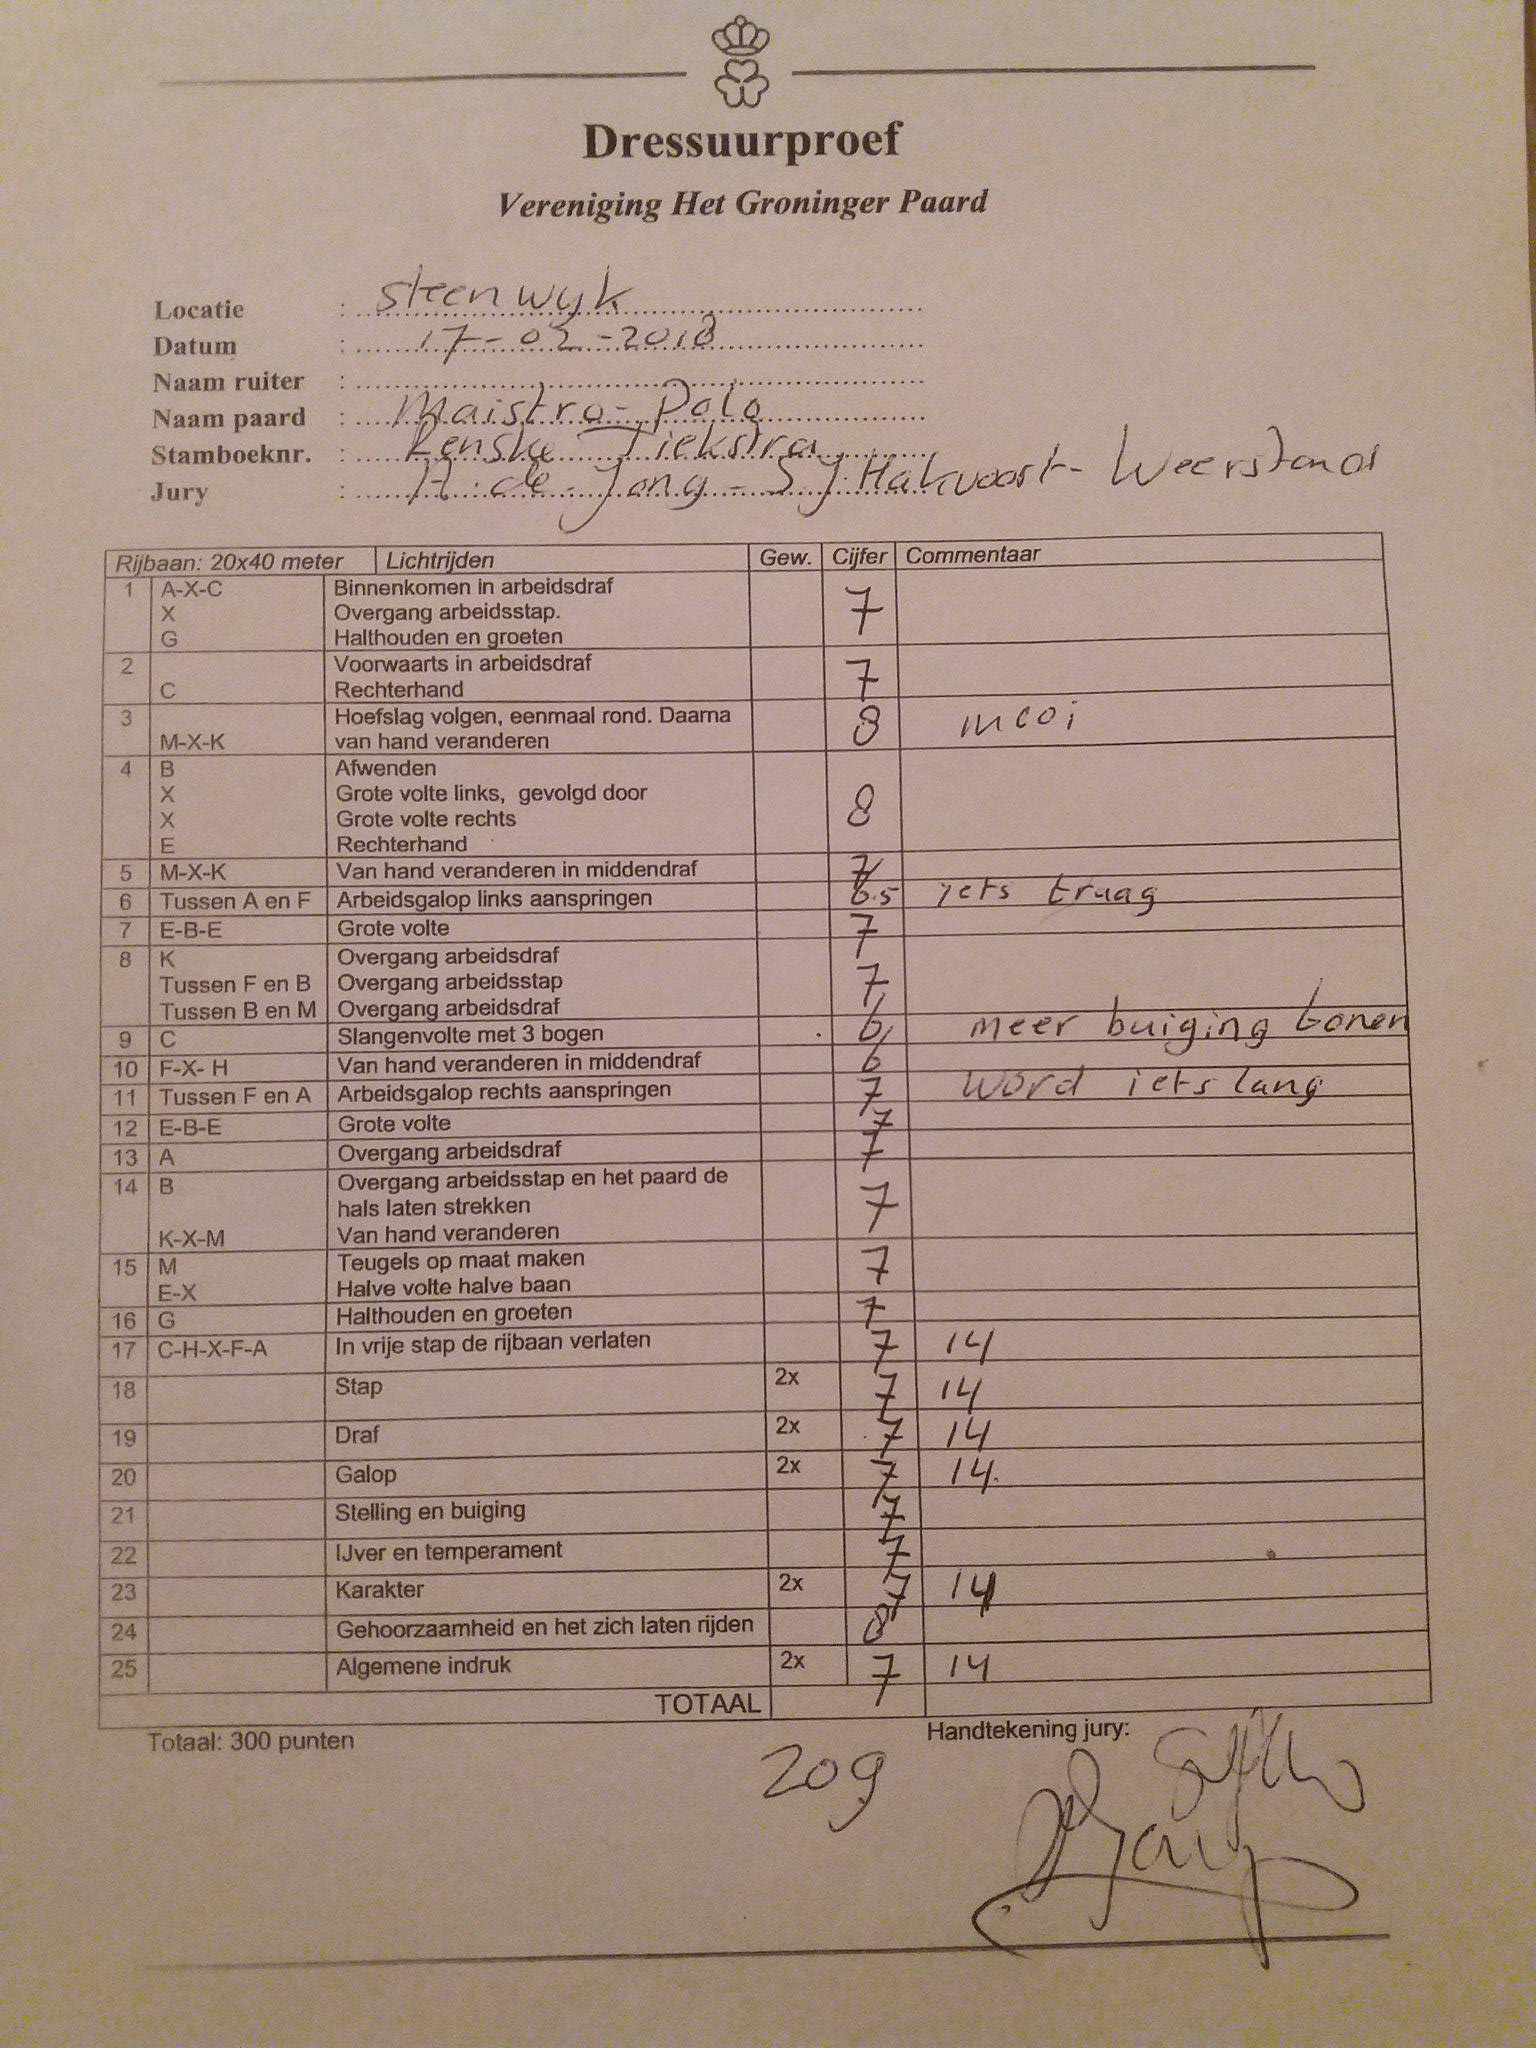 Dressuurproef
Vereniging Het Groninger Paard
Locatie : steenwyk
Datum : 17-02-2018
Naam ruiter :
Naam paard : Maistro-Polo
Stamboeknr. : Renske Tiekstra
Jury : H. de Jong - S J Hakvoort - Weerstand
Rijbaan: 20x40 meter Lichtrijden Gew. Cijfer Commentaar
1 A-X-C Binnenkomen in arbeidsdraf
X Overgang arbeidsstap. 7
G Halthouden en groeten
2 Voorwaarts in arbeidsdraf 7
C Rechterhand
3 Hoefslag volgen, eenmaal rond. Daarna 8 mooi
M-X-K van hand veranderen
4 B Afwenden
X Grote volte links, gevolgd door 8
X Grote volte rechts
E Rechterhand
5 M-X-K Van hand veranderen in middendraf 7
6 Tussen A en F Arbeidsgalop links aanspringen 6.5 iets traag
7 E-B-E Grote volte 7
8 K Overgang arbeidsdraf
Tussen F en B Overgang arbeidsstap 7
Tussen B en M Overgang arbeidsdraf
9 C Slangenvolte met 3 bogen 6 meer buiging tonen
10 F-X- H Van hand veranderen in middendraf 6
11 Tussen F en A Arbeidsgalop rechts aanspringen 7 word iets lang
12 E-B-E Grote volte 7
13 A Overgang arbeidsdraf 7
14 B Overgang arbeidsstap en het paard de
hals laten strekken 7
K-X-M Van hand veranderen
15 M Teugels op maat maken 7
E-X Halve volte halve baan
16 G Halthouden en groeten 7
17 C-H-X-F-A In vrije stap de rijbaan verlaten 7 14
18 Stap 2x 7 14
19 Draf 2x 7 14
20 Galop 2x 7 14.
21 Stelling en buiging 7
22 IJver en temperament 7
23 Karakter 2x 7 14
24 Gehoorzaamheid en het zich laten rijden 8
25 Algemene indruk 2x 7 14
TOTAAL
Totaal: 300 punten 209 Handtekening jury: